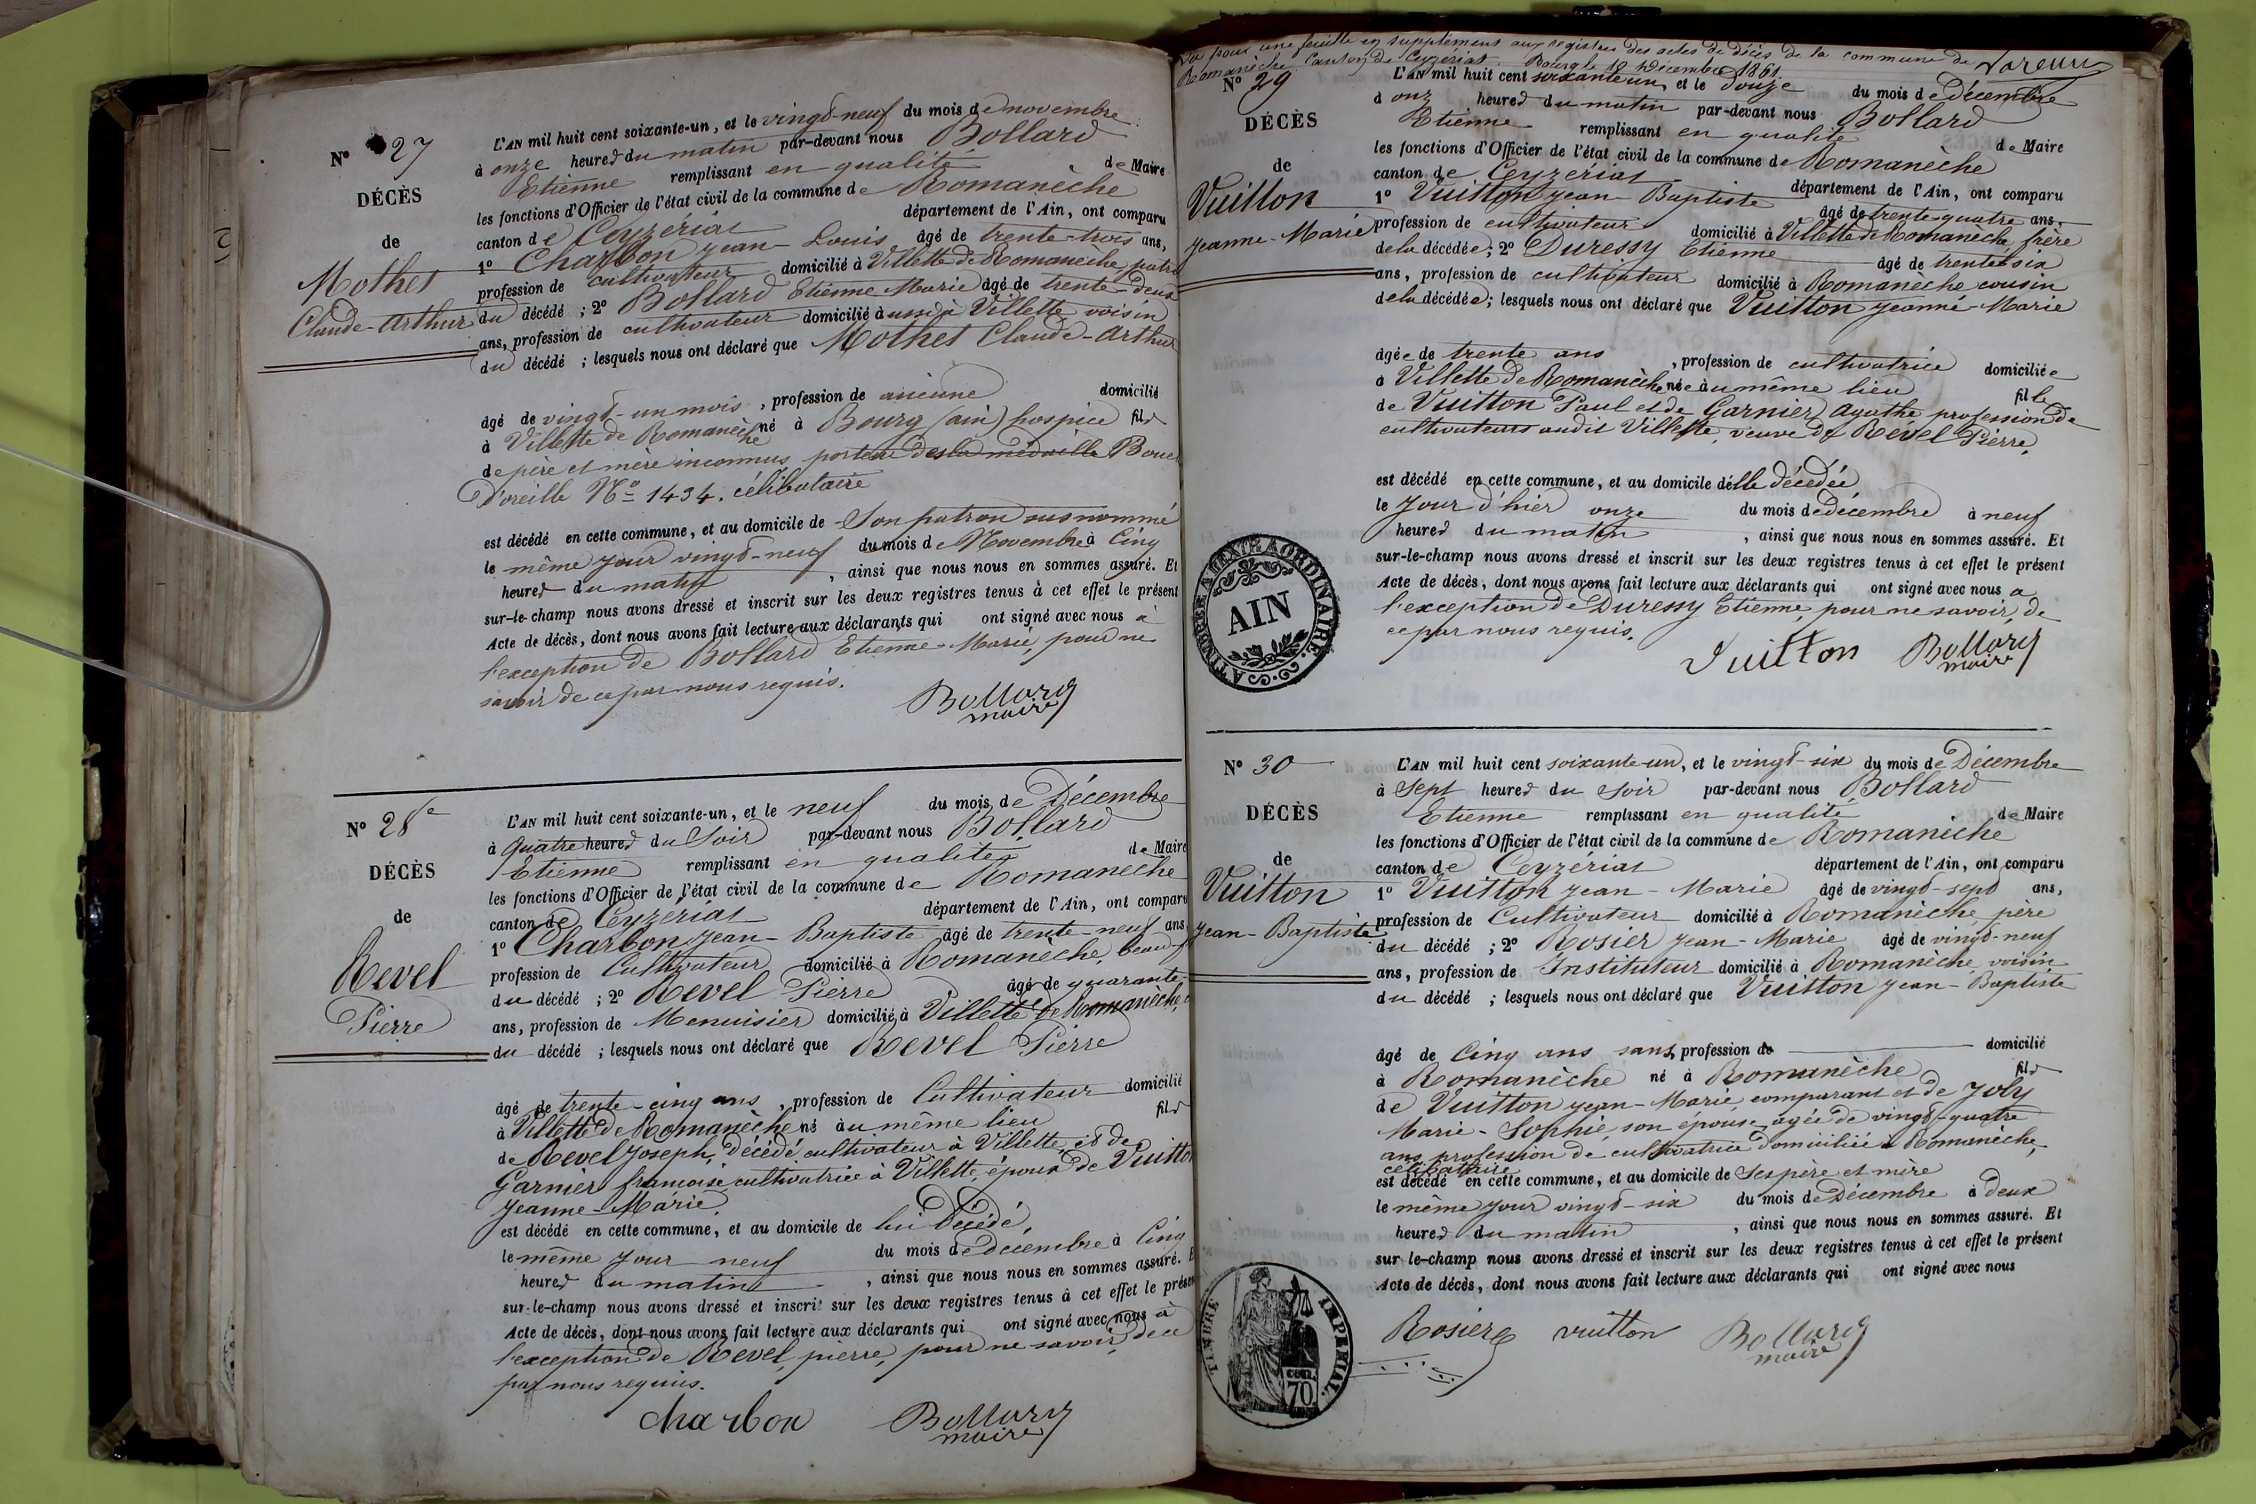 N° 27
DÉCÈS
de
Mothet
Claude-Arthur
L'AN mil huit cent soixante-un, et le vingt-neuf du mois de novembre
à onze heures du matin par-devant nous Bollard
Etienne remplissant en qualité de Maire
les fonctions d'Officier de l'état civil de la commune de Romanèche
canton de Ceyzériat département de l'Ain, ont comparu
1° Charbon Jean-Louis âgé de trente-trois ans,
profession de cultivateur domicilié à Villette de Romanèche, patron
du décédé ; 2° Bollard Etienne Marie âgé de trente-deux
ans, profession de cultivateur domicilié à aussi à Villette voisin
du décédé ; lesquels nous ont déclaré que Mothet Claude-Arthur
âgé de vingt-un mois, profession de aucune domicilié
à Villette de Romanèche né à Bourg (ain) hospice fils
de père et mère inconnus, porteur de la médaille Boucle
d'oreille N° 1434. célibataire
est décédé en cette commune, et au domicile de Son patron susnommé
le même jour vingt-neuf du mois de Novembre à Cinq
heures du matin, ainsi que nous nous en sommes assuré. Et
sur-le-champ nous avons dressé et inscrit sur les deux registres tenus à cet effet le présent
Acte de décès, dont nous avons fait lecture aux déclarants qui ont signé avec nous à
l'exception de Bollard Etienne-Marie, pour ne
savoir de ce par nous requis.
Bollard
maire
N° 28e
DÉCÈS
de
Revel
Pierre
L'AN mil huit cent soixante-un, et le neuf du mois de Décembre
à quatre heures du Soir par-devant nous Bollard
Etienne remplissant en qualité de Maire
les fonctions d'Officier de l'état civil de la commune de Romanèche
canton de Ceyzériat département de l'Ain, ont comparu
1° Charbon Jean-Baptiste âgé de trente-neuf ans
profession de Cultivateur domicilié à Romanèche, beau-f
du décédé ; 2° Revel Pierre âgé de quarante
ans, profession de Menuisier domicilié à Villette de Romanèche,
du décédé ; lesquels nous ont déclaré que Revel Pierre
âgé de trente-cinq ans, profession de Cultivateur domicilié
à Villette de Romanèche né au même lieu fils
de Revel Joseph, décédé cultivateur à Villette, et de
Garnier françoise cultivatrice à Villette, époux de Vuitton
Jeanne-Marie.
est décédé en cette commune, et au domicile de lui décédé,
le même jour neuf du mois de décembre à Cinq
heures du matin, ainsi que nous nous en sommes assuré. E
sur-le-champ nous avons dressé et inscrit sur les deux registres tenus à cet effet le présen
Acte de décès, dont nous avons fait lecture aux déclarants qui ont signé avec nous à
l'exception de Revel, pierre, pour ne savoir, de ce
par nous requis.
Charbon Bollard
maire
Vu pour une feuille en supplément aux registres des actes de décès de la commune de
Romanèche Canton de Ceyzériat. Bourg le 12 Décembre 1861.
N° 29
DÉCÈS
de
Vuitton
Jeanne-Marie
L'AN mil huit cent soixante-un, et le Douze du mois de Décembre
à onz heures du matin par-devant nous Bollard
Etienne remplissant en qualité de Maire
les fonctions d'Officier de l'état civil de la commune de Romanèche
canton de Ceyzériat département de l'Ain, ont comparu
1° Vuitton Jean-Baptiste âgé de trente-quatre ans,
profession de cultivateur domicilié à Villette de Romanèche, frère
de la décédée ; 2° Duressy Etienne âgé de trente-six
ans, profession de cultivateur domicilié à Romanèche cousin
de la décédée ; lesquels nous ont déclaré que Vuitton Jeanne-Marie
âgée de trente ans, profession de cultivatrice domiciliée
à Villette de Romanèche née au même lieu fille
de Vuitton Paul et de Garnier Agathe profession de
cultivateurs audit Villette, veuve de Revel Pierre,
est décédé en cette commune, et au domicile d'elle décédée
le Jour d'hier onze du mois de décembre à neuf
heures du matin, ainsi que nous nous en sommes assuré. Et
sur-le-champ nous avons dressé et inscrit sur les deux registres tenus à cet effet le présent
Acte de décès, dont nous avons fait lecture aux déclarants qui ont signé avec nous à
l'exception de Duressy Etienne, pour ne savoir, de
ce par nous requis.
Vuitton Bollard
maire
A TIMBRER A L'EXTRAORDINAIRE.
AIN
N° 30
DÉCÈS
de
Vuitton
Jean-Baptiste
L'AN mil huit cent soixante-un, et le vingt-six du mois de Décembre
à Sept heures du Soir par-devant nous Bollard
Etienne remplissant en qualité de Maire
les fonctions d'Officier de l'état civil de la commune de Romanèche
canton de Ceyzériat département de l'Ain, ont comparu
1° Vuitton Jean-Marie âgé de vingt-sept ans,
profession de Cultivateur domicilié à Romanèche, père
du décédé ; 2° Rosier Jean-Marie âgé de vingt-neuf
ans, profession de Instituteur domicilié à Romanèche, voisin
du décédé ; lesquels nous ont déclaré que Vuitton Jean-Baptiste
âgé de Cinq ans sans profession de domicilié
à Romanèche né à Romanèche fils
de Vuitton Jean-Marie comparant et de Joly
Marie-Sophie, son épouse, agée de vingt-quatre
ans, profession de cultivatrice domiciliée à Romanèche,
célibataire
est décédé en cette commune, et au domicile de Ses père et mère
le même jour vingt-six du mois de Décembre à deux
heures du matin, ainsi que nous nous en sommes assuré. Et
sur-le-champ nous avons dressé et inscrit sur les deux registres tenus à cet effet le présent
Acte de décès, dont nous avons fait lecture aux déclarants qui ont signé avec nous
Rosier vuitton Bollard
maire
TIMBRE IMPERIAL.
CENT. 70